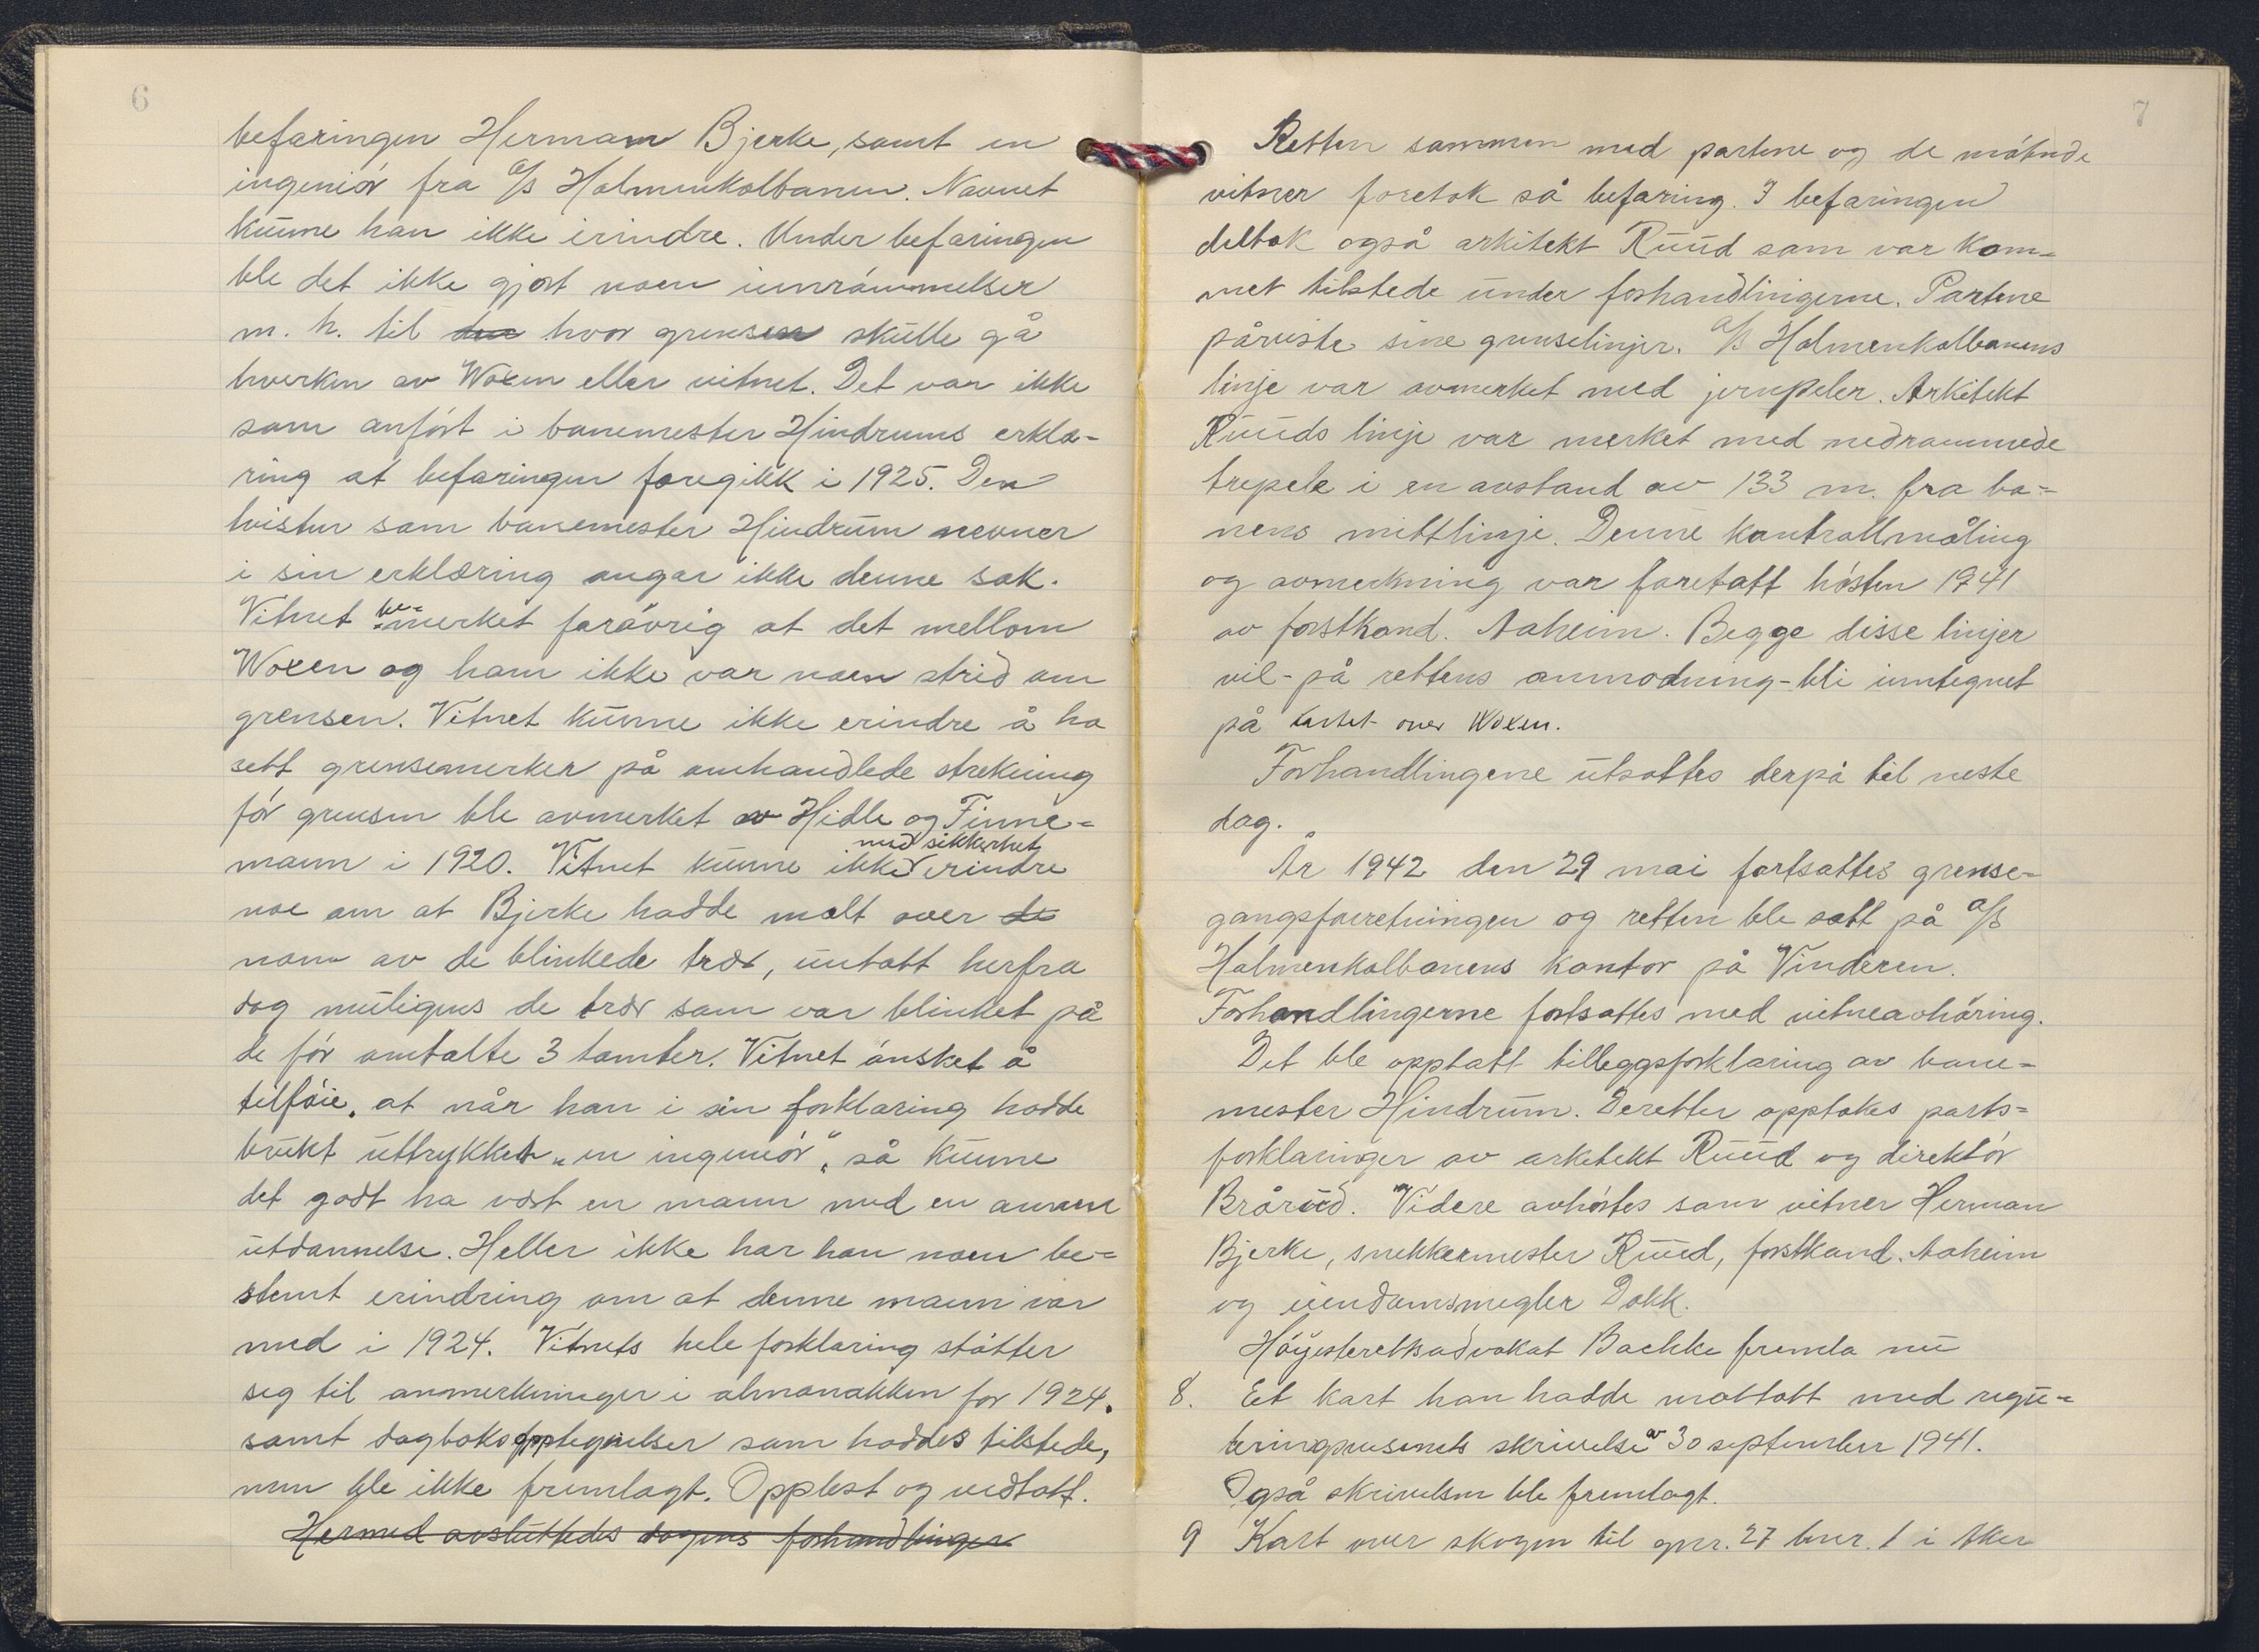 6
befaringen Hermann Bjerke, samt en
ingeniør fra A/S Holmenkolbanen. Navnet
kunne han ikke erindre. Under befaringen
ble det ikke gjort noen innrømmelser
m. h. til hvor grensen skulle gå
hverken av Woxen eller vitnet. Det var ikke
som anført i banemester Hindrums erklæ-
ring at befaringen foregikk i 1925. Den
tvisten som banemester Hindrum nevner
i sin erklæring angår ikke denne sak.
Vitnet be-merket forøvrig at det mellom
Woxen og ham ikke var noen strid om
grensen. Vitnet kunne ikke erindre å ha
sett grensemerker på omhandlede strekning
før grensen ble avmerket av Hidle og Finne-
mann i 1920. Vitnet kunne ikke med sikkerhet erindre
noe om at Bjerke hadde malt over de
noen av de blinkede trær, untatt herfra
dog muligens de trær som var blinket på
de før omtalte 3 tomter. Vitnet ønsket å
tilføie, at når han i sin forklaring hadde
brukt uttrykket „en ingeniør“ så kunne
det godt ha vært en mann med en annen
utdannelse. Heller ikke har han noen be-
stemt erindring om at denne mann var
med i 1924. Vitnets hele forklaring støtter
seg til anmerkninger i almanakken for 1924.
samt dagboksopptegnelser som haddes tilstede,
men ble ikke fremlagt. Opplest og vedtatt.
Hermed avsluttedes dagens forhandlinger
7
Retten sammen med partene og de møtende
vitner foretok så befaring. I befaringen
deltok også arkitekt Ruud som var kom-
met tilstede under forhandlingerne. Partene
påviste sine grenselinjer. A/S Holmenkolbanens
linje var avmerket med jernpeler. Arkitekt
Ruuds linje var merket med nedrammede
trepele i en avstand av 133 m. fra ba-
nens mittlinje. Denne kontrollmåling
og avmerkning var foretatt høsten 1941
av forstkand. Aaheim. Begge disse linjer
vil - på rettens anmodning - bli inntegnet
på kartet over Woxen.
Forhandlingene utsattes derpå til neste
dag.
År 1942 den 29 mai fortsattes grense-
gangsforretningen og retten ble satt på A/S
Holmenkolbanens kontor på Vinderen.
Forhandlingerne fortsattes med vitneavhøring.
Det ble opptatt tilleggsforklaring av bane-
mester Hindrum. Deretter opptokes parts-
forklaringer av arkitekt Ruud og direktør
Brårud. Videre avhørtes som vitner Herman
Bjerke, snekkermester Ruud, forstkand. Aaheim
og eiendomsmegler Dokk.
Høyesterettsadvokat Bachke fremla nu
8. Et kart han hadde mottatt med regu-
leringsvesenets skrivelse av 30 september 1941.
Også skrivelsen ble fremlagt.
9 Kart over skogen til gnr. 27 bnr. 1 i Aker